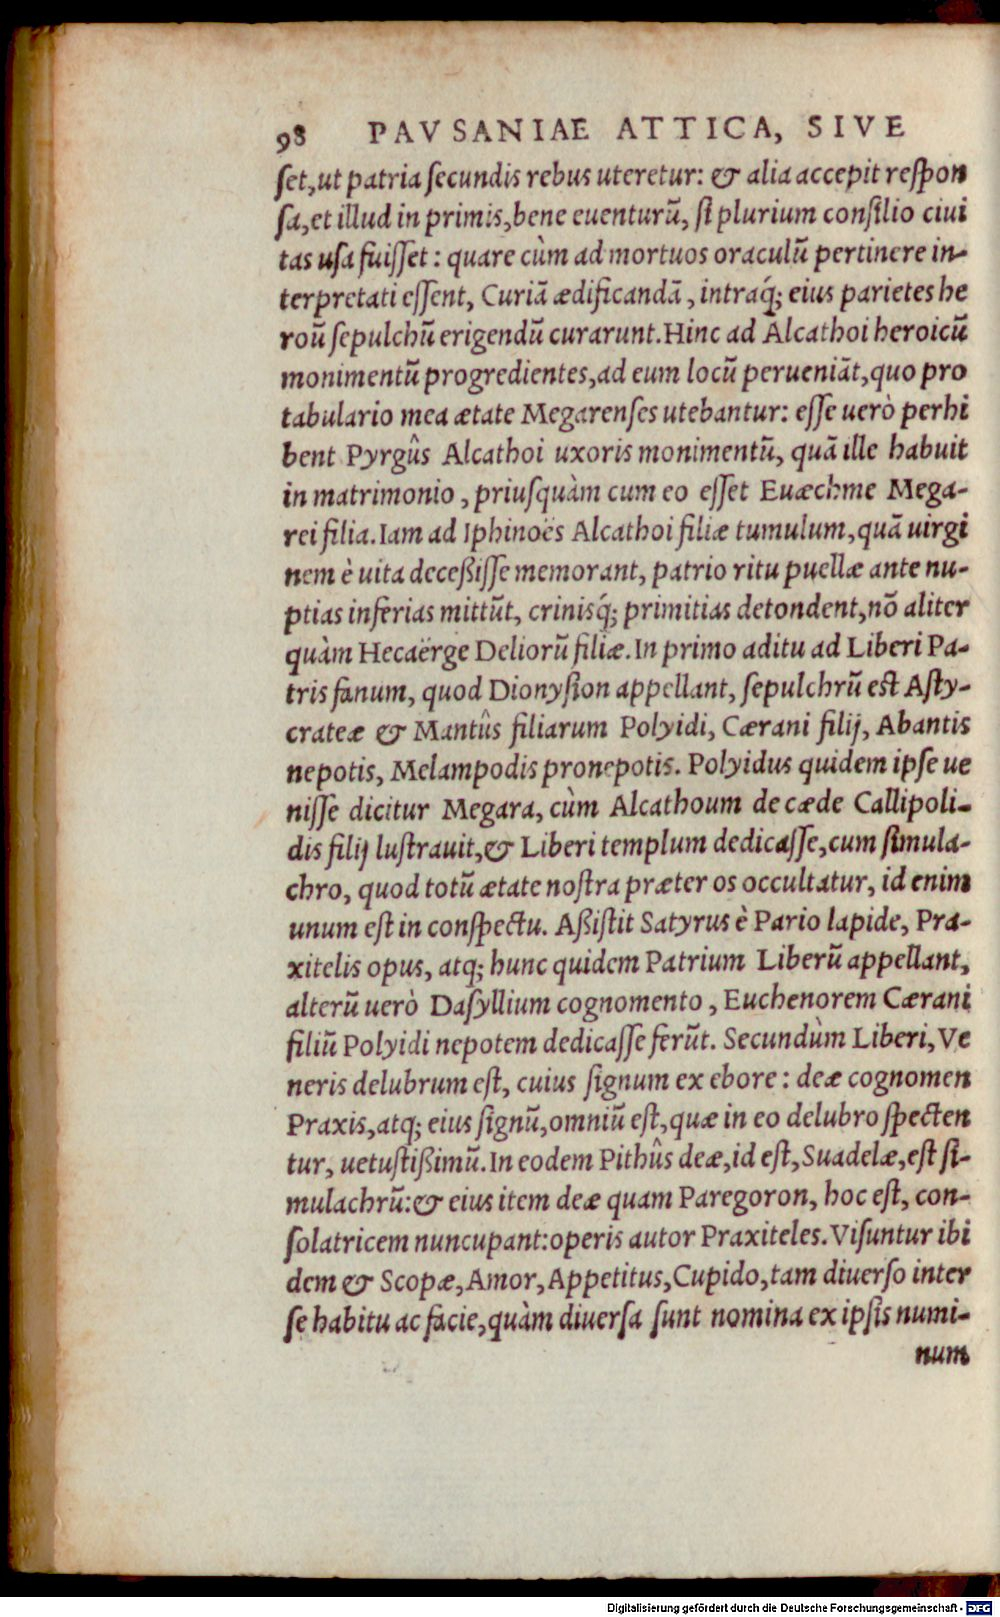 98 PAVSANIAE ATTICA, SIVE
ſet, ut patria ſecundis rebus uteretur: & alia accepit reſpon
ſa, et illud in primis, bene euenturū, ſi plurium conſilio ciui
tas uſa fuiſſet: quare cùm ad mortuos oraculū pertinere in-
terpretati eſſent, Curiā ædificandā, intraq́; eius parietes he
roū ſepulchū erigendū curarunt. Hinc ad Alcathoi heroicū
monimentū progredientes, ad eum locū perueniāt, quo pro
tabulario mea ætate Megarenſes utebantur: eſſe uerò perhi
bent Pyrgûs Alcathoi uxoris monimentū, quā ille habuit
in matrimonio, priuſquàm cum eo eſſet Euæchme Mega-
rei filia. Iam ad Iphinoës Alcathoi filiæ tumulum, quā uirgi
nem è uita deceßiſſe memorant, patrio ritu puellæ ante nu-
ptias inferias mittūt, crinisq́; primitias detondent, nō aliter
quàm Hecaërge Deliorū filiæ. In primo aditu ad Liberi Pa-
tris fanum, quod Dionyſion appellant, ſepulchrū est Aſty-
crateæ & Mantûs filiarum Polyidi, Cærani filij, Abantis
nepotis, Melampodis pronepotis. Polyidus quidem ipſe ue
niſſe dicitur Megara, cùm Alcathoum de cæde Callipoli-
dis filij luſtrauit, & Liberi templum dedicaſſe, cum ſimula-
chro, quod totū ætate noſtra præter os occultatur, id enim
unum eſt in conſpectu. Aßiſtit Satyrus è Pario lapide, Pra-
xitelis opus, atq; hunc quidem Patrium Liberū appellant,
alterū uerò Daſyllium cognomento, Euchenorem Cærani
filiū Polyidi nepotem dedicaſſe ferūt. Secundùm Liberi, Ve
neris delubrum eſt, cuius ſignum ex ebore: deæ cognomen
Praxis, atq; eius ſignū, omniū eſt, quæ in eo delubro ſpecten
tur, uetuſtißimū. In eodem Pithûs deæ, id eſt, Suadelæ, eſt ſi-
mulachrū: & eius item deæ quam Paregoron, hoc eſt, con-
ſolatricem nuncupant: operis autor Praxiteles. Viſuntur ibi
dem & Scopæ, Amor, Appetitus, Cupido, tam diuerſo inter
ſe habitu ac facie, quàm diuerſa ſunt nomina ex ipſis numi-
num
Digitalisierung gefördert durch die Deutsche Forschungsgemeinschaft - DFG